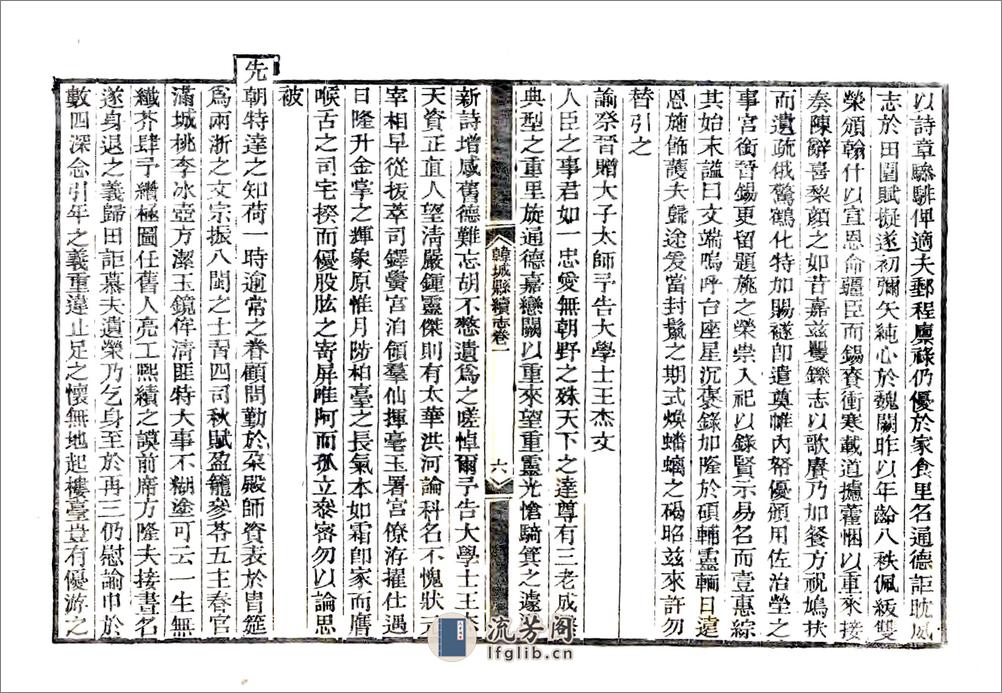 以詩章驂騑俾適夫郵程廩祿仍優於家食里名通德詎耽風
志於田園賦擬遂初彌矢純心於魏闕昨以年齡八秩佩綬雙
榮頒翰什以宣恩命疆臣而錫賚衝寒載道攄藎悃以重來接
奏陳辭喜棃顏之如昔嘉茲矍鑠志以歌賡乃加餐方祝鳩扶
而遺疏俄驚鶴化特加賜禭卽遣奠帷內帑優頒用佐治塋之
事宮銜晉錫更留題旐之榮崇入祀以錄賢示易名而壹惠綜
其始末謚曰文端嗚呼台座星沉褒錄加隆於碩輔靈輀日遠
恩施飾護夫歸途爰當封鬣之期式煥蟠螭之碣昭茲來許勿
替引之
諭祭晉贈大子太師予告大學士王杰文
人臣之事君如一忠愛無朝野之殊天下之達尊有三老成
典型之重里旋通德嘉戀闕以重來望重靈光愴騎箕之遽
新詩增感舊德難忘胡不憗遺爲之嗟悼爾予告大學士王
天資正直人望淸嚴鍾靈傑則有太華洪河論科名不愧狀
宰相早從拔萃司鐸黌宮洎領羣仙揮毫玉署官僚洊擢仕遇
日隆升金掌之輝象原惟月陟柏臺之長氣本如霜卽家而膺
喉舌之司宅揆而優股肱之寄屏唯阿而孤立叅密勿以論思
被
先朝特達之知荷一時逾常之眷顧問勤於朶殿師資表於胄筵
爲兩浙之文宗振八閩之士習四司秋賦盈籠參苓五主春官
滿城桃李冰壺方潔玉鏡侔淸匪特大事不糊塗可云一生無
纖芥肆予纘極圖任舊人亮工熙績之謨前席方隆夫接晝名
遂身退之義歸田詎慕夫遺榮乃乞身至於再三仍慰諭申於
數四深念引年之義重違止足之懷無地起樓臺豈有優游之
韓城縣續志卷一
六
流芳閣
lfglib.cn